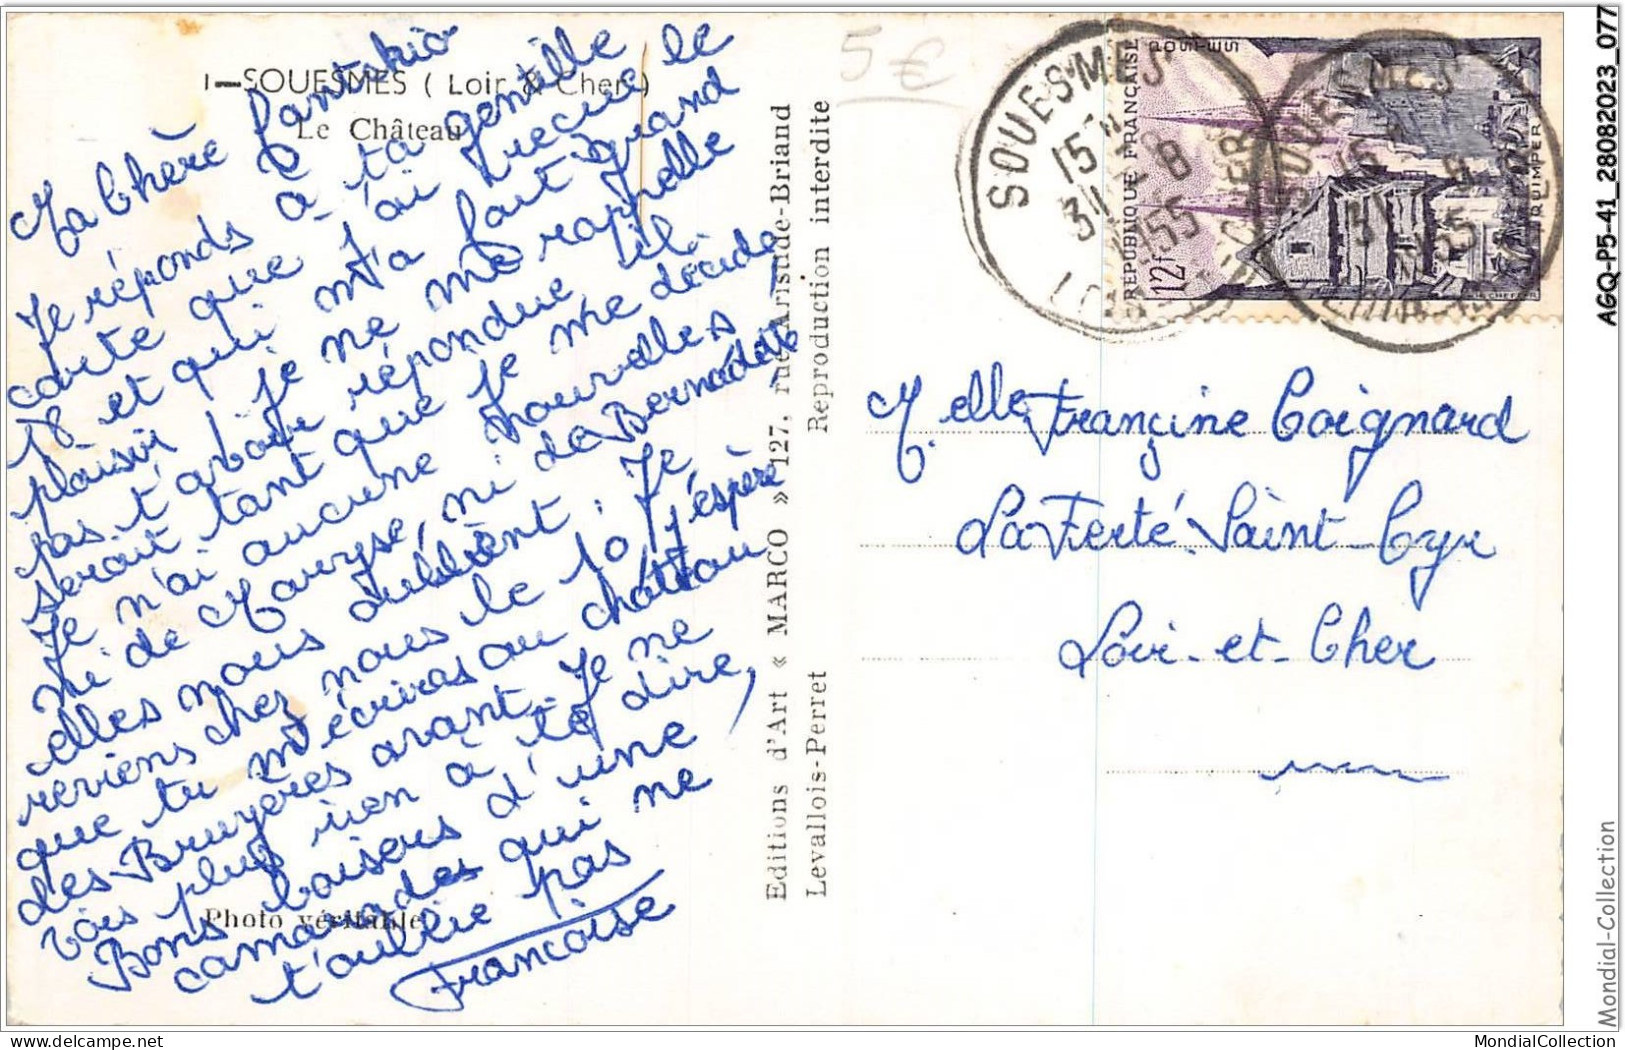 1 — SOUESMES ( Loir & Cher )
Le Château
Ma chère Fantskio
Je réponds à ta gentille
carte que j'ai reçue le
18 et qui m'a fait grand
plaisir, je ne me rappelle
pas t'avoir répondue, il
serait tant que je me décide,
Je n'ai aucune nouvelles
ni de Maryse, ni de Bernadette
elles nous oublient. Je
reviens chez nous le 10 j'espère
que tu m'écriras au château
des Bruyères avant. Je ne
vois plus rien à te dire,
Bons baisers d'une
camarades qui ne
t'oublie pas
Françoise
Photo véritable
Editions d'Art « MARCO » 127, rue Aristide-Briand
Levallois-Perret Reproduction interdite
5 €
SOUESMES
15 H
31 - 8
1955
LOIR-ET-CHER
SOUESMES
15 H
31 8
1955
REPUBLIQUE FRANÇAISE
POSTES
12f
QUIMPER
CHEFFER
Melle Françine Coignard
La Ferté Saint-Cyr
Loir-et-Cher
AGQ-P5-41_28082023_077
Mondial-Collection
MondialCollection